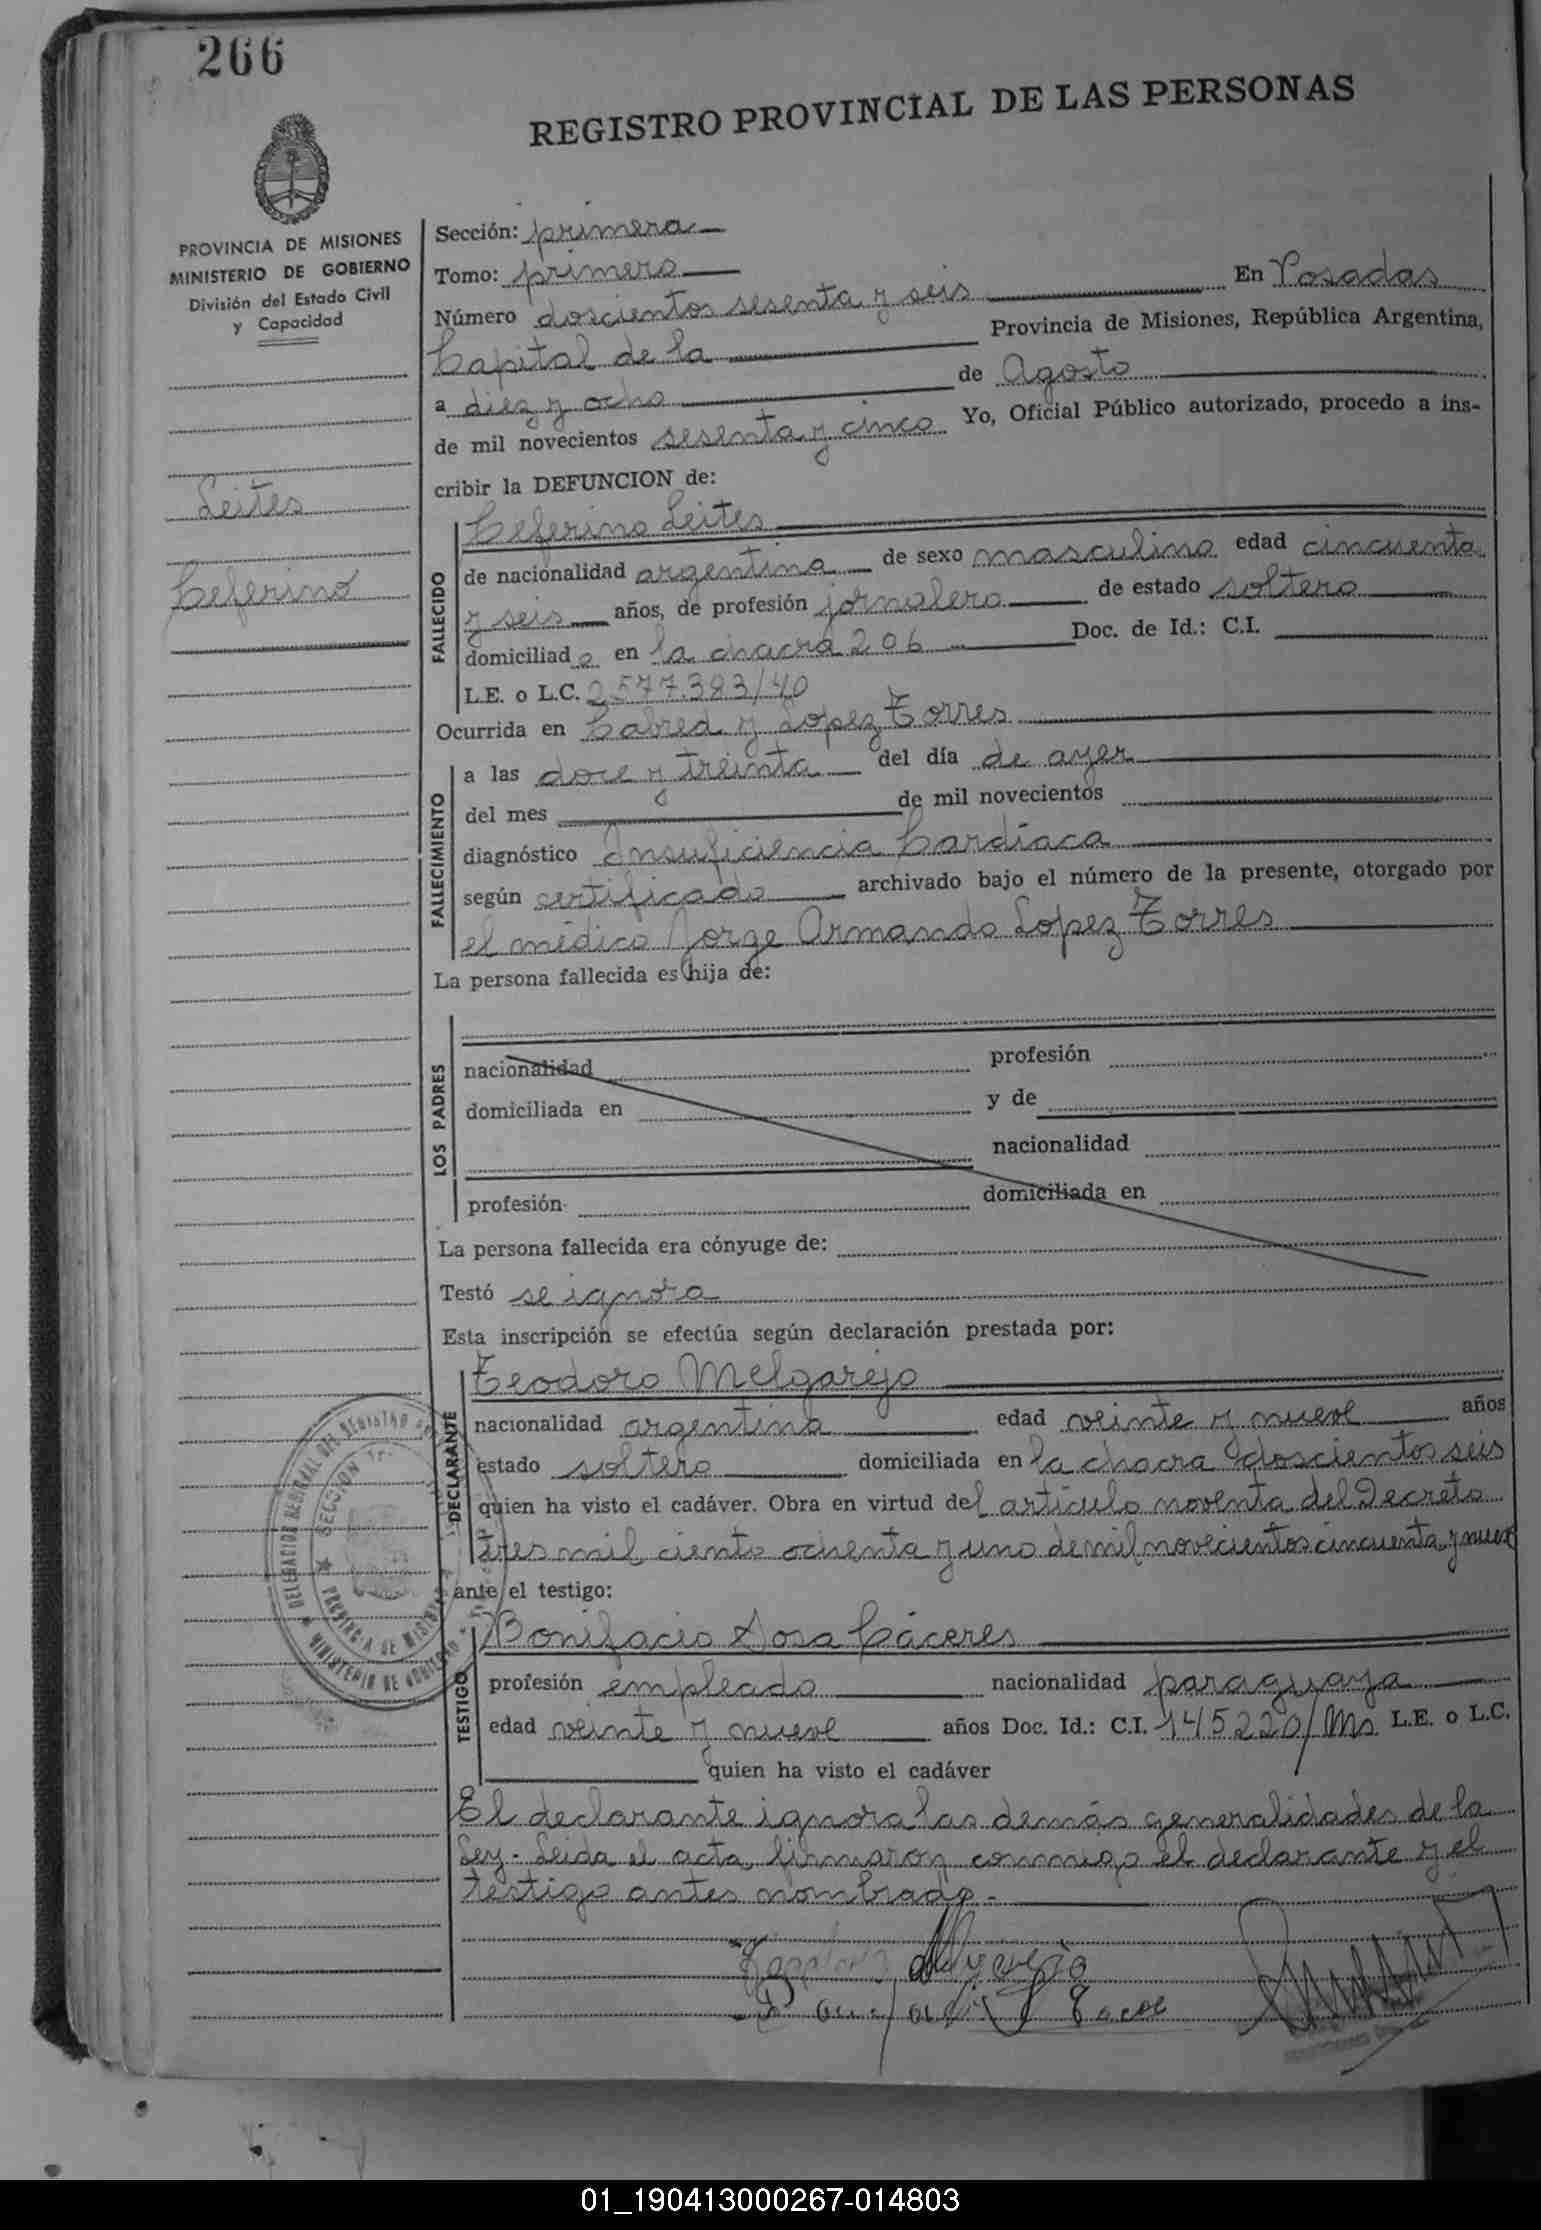 266
REGISTRO PROVINCIAL DE LAS PERSONAS
PROVINCIA DE MISIONES
MINISTERIO DE GOBIERNO
División del Estado Civil
y Capacidad
Leites
Ceferino
Sección: primera
Tomo: primero
Número doscientos sesenta y seis En Posadas
Capital de la Provincia de Misiones, República Argentina,
a diez y ocho de Agosto
de mil novecientos sesenta y cinco Yo, Oficial Público autorizado, procedo a ins-
cribir la DEFUNCION de:
FALLECIDO
Ceferino Leites
de nacionalidad argentina de sexo masculino edad cincuenta
y seis años, de profesión jornalero de estado soltero
domiciliado en la chacra 206 Doc. de Id.: C.I.
L.E. o L.C. 2577.383/40
Ocurrida en Cabred y Lopez Torres
FALLECIMIENTO
a las doce y treinta del día de ayer
del mes de mil novecientos
diagnóstico Insuficiencia Cardíaca
según certificado archivado bajo el número de la presente, otorgado por
el médico Jorge Armando Lopez Torres
La persona fallecida es hija de:
LOS PADRES
nacionalidad profesión
domiciliada en y de
nacionalidad
profesión domiciliada en
La persona fallecida era cónyuge de:
Testó se ignora
Esta inscripción se efectúa según declaración prestada por:
DECLARANTE
Teodoro Melgarejo
nacionalidad argentina edad veinte y nueve años
estado soltero domiciliada en la chacra doscientos seis
quien ha visto el cadáver. Obra en virtud del artículo noventa del Decreto
tres mil ciento ochenta y uno de mil novecientos cincuenta y nueve
ante el testigo:
TESTIGO
Bonifacio Sosa Cáceres
profesión empleado nacionalidad paraguaya
edad veinte y nueve años Doc. Id.: C.I. 145220/Ms L.E. o L.C.
quien ha visto el cadáver
El declarante ignora las demás generalidades de la
Ley- Leida el acta, firmaron conmigo el declarante y el
testigo antes nombrado-
DEL REGISTRO
SECCION
PROVINCIA DE MISIONES
MINISTERIO DE GOBIERNO
01_190413000267-014803